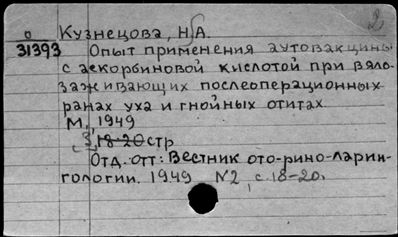 2
о Кузнецова, Н.А.
31393 Опыт применения аутовакцины
с аскорбиновой кислотой при вяло-
заживающих послеоперационных
ранах уха и гнойных отитах.
М, 1949
с 18-20 стр
Отд. отт: Вестник ото-рино-ларин-
гологии. 1949 N2, с. 18-20.